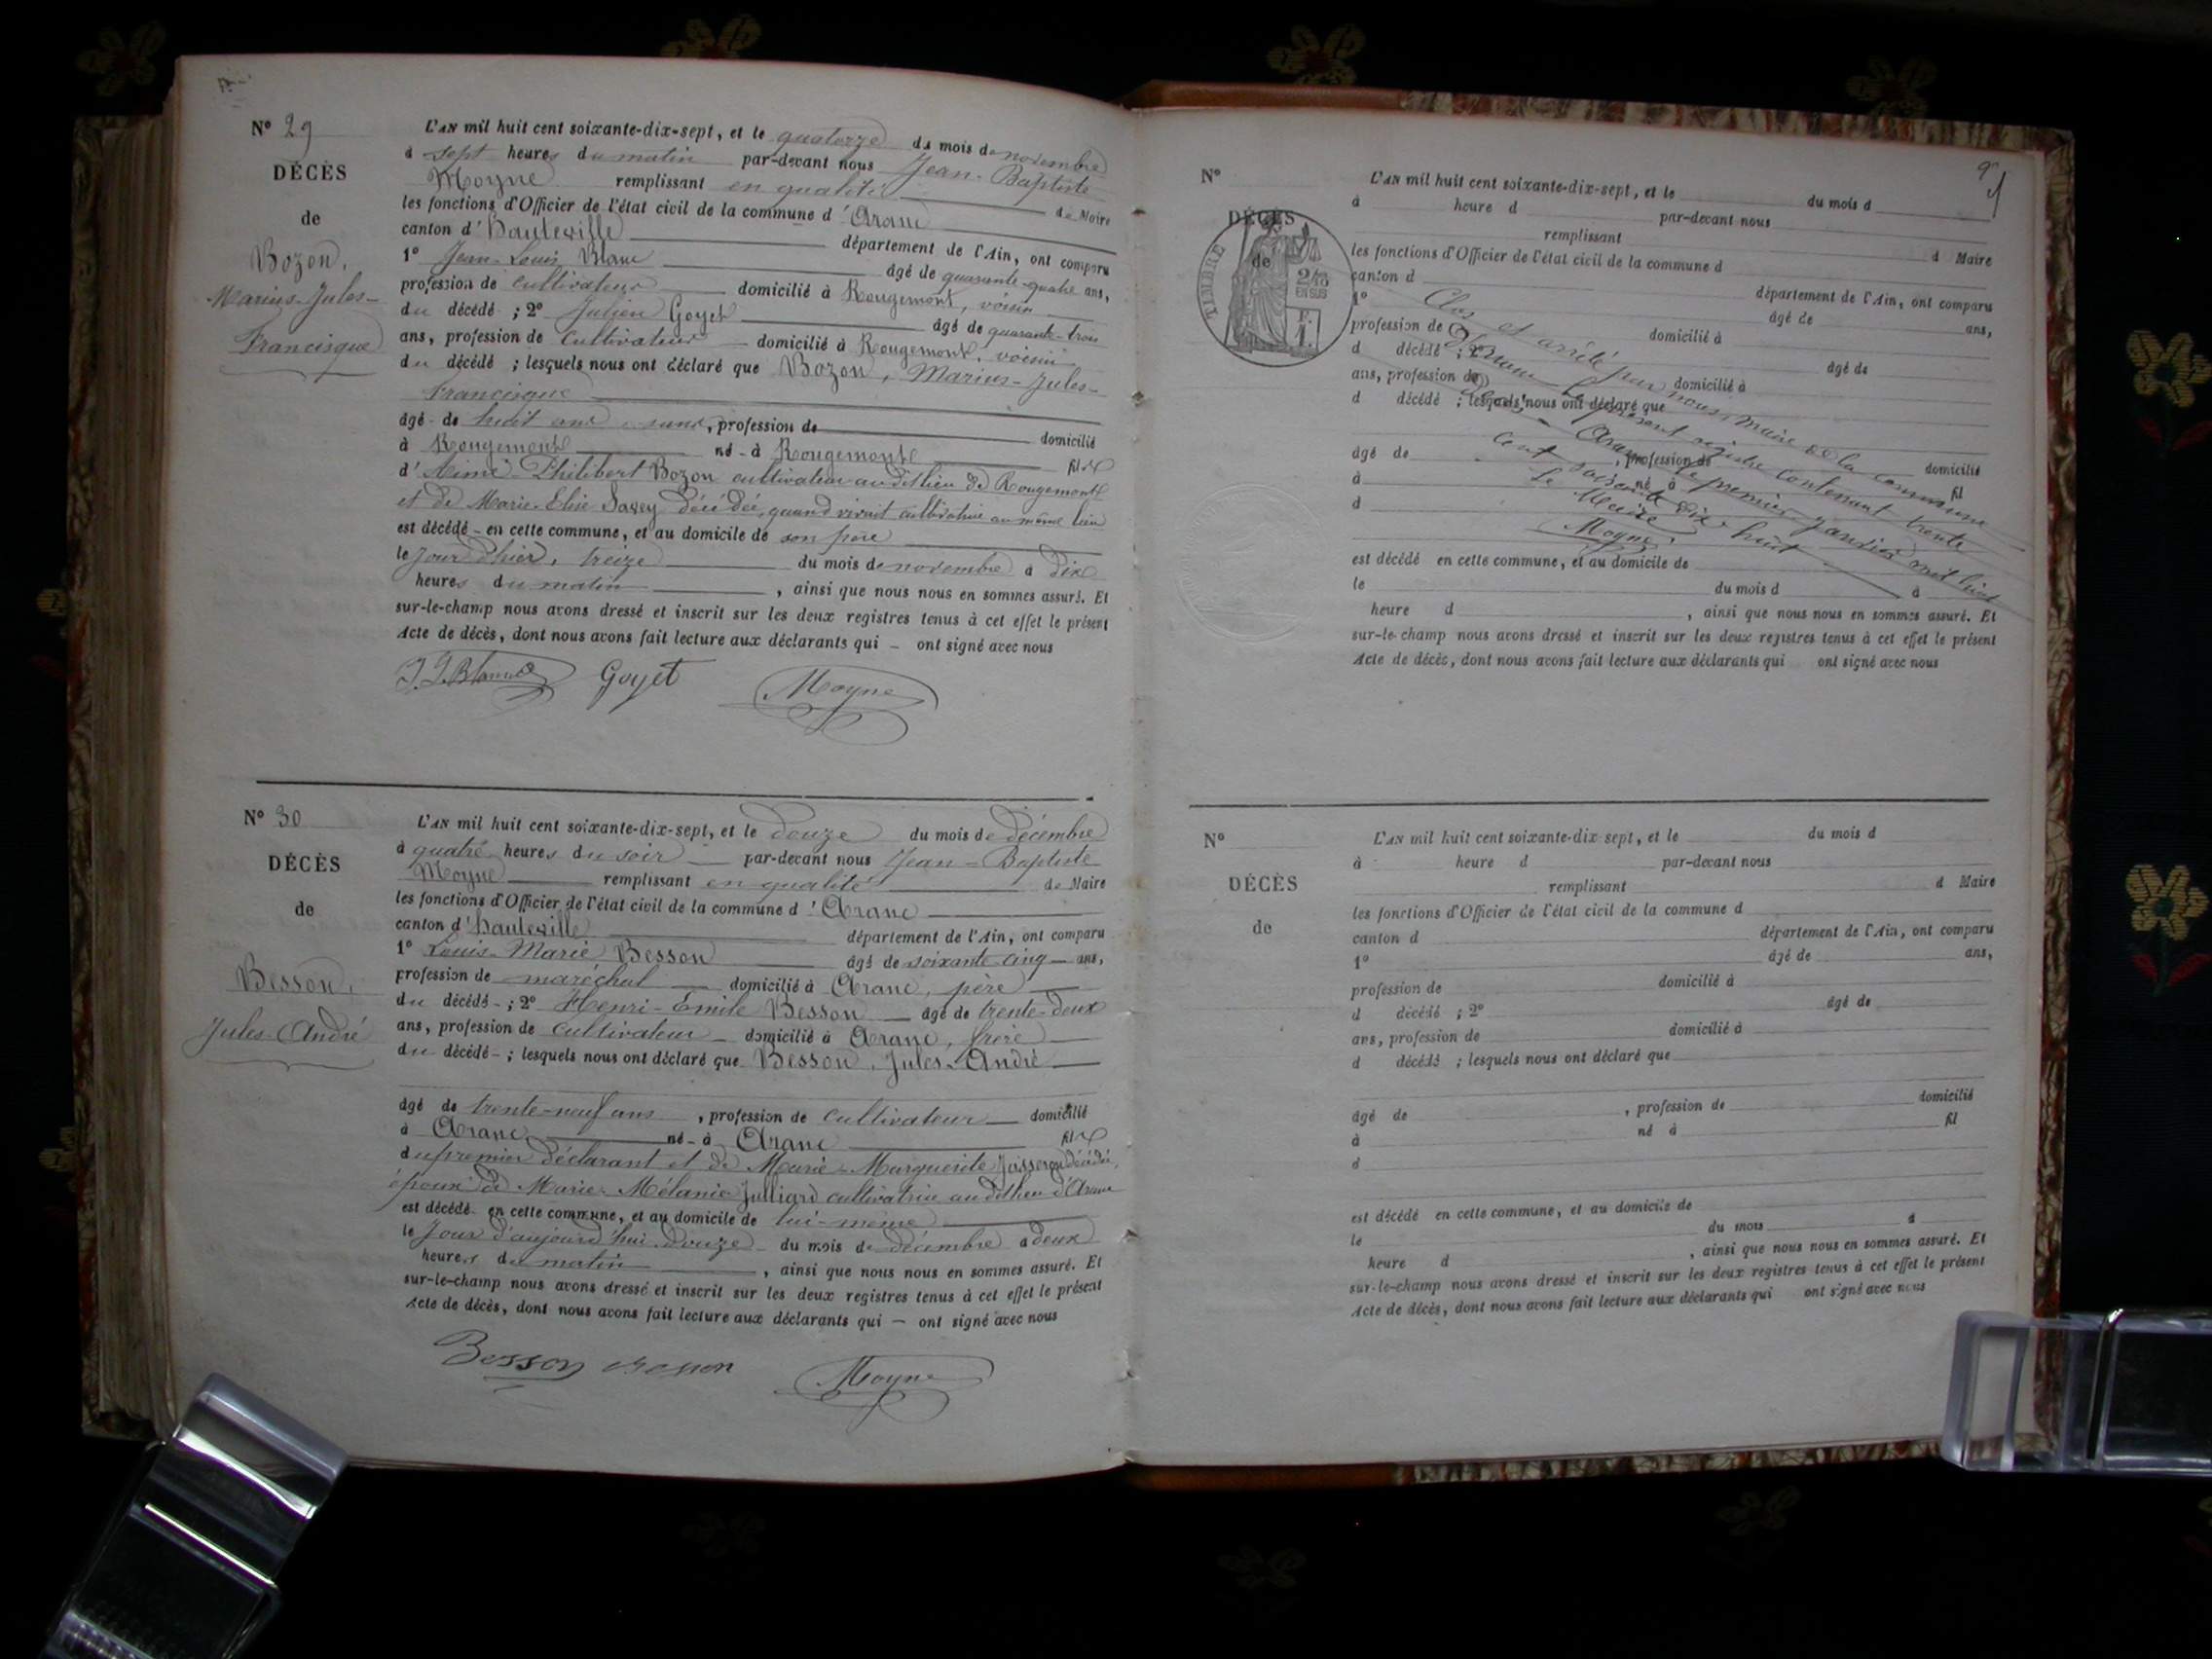 Nº 29
DÉCÈS
de
Bozon,
Marius-Jules-
Francisque
L'AN mil huit cent soixante-dix-sept, et le quatorze du mois de novembre
à sept heures du matin par-devant nous Jean-Baptiste
Moyne remplissant en qualité de Maire
les fonctions d'Officier de l'état civil de la commune d'Aranc
canton d'Hauteville département de l'Ain, ont comparu
1º Jean-Louis Blanc âgé de quarante-quatre ans,
profession de cultivateur domicilié à Rougemont, voisin
du décédé ; 2º Julien Goyet âgé de quarante-trois
ans, profession de cultivateur domicilié à Rougemont, voisin
du décédé ; lesquels nous ont déclaré que Bozon, Marius-Jules-
Francisque
âgé de huit ans, sans, profession de domicilié
à Rougemont né à Rougemont fils
d'Aimé-Philibert Bozon cultivateur au dit lieu de Rougemont
et de Marie-Elise Savey décédée, quand vivait cultivatrice au même lieu
est décédé en cette commune, et au domicile de son père
le jour d'hier, treize du mois de novembre à dix
heures du matin, ainsi que nous nous en sommes assuré. Et
sur-le-champ nous avons dressé et inscrit sur les deux registres tenus à cet effet le présent
Acte de décès, dont nous avons fait lecture aux déclarants qui – ont signé avec nous
J. L. Blanc Goyet Moyne
Nº 30
DÉCÈS
de
Besson,
Jules-André
L'AN mil huit cent soixante-dix-sept, et le douze du mois de décembre
à quatre heures du soir par-devant nous Jean-Baptiste
Moyne remplissant en qualité de Maire
les fonctions d'Officier de l'état civil de la commune d'Aranc
canton d'Hauteville département de l'Ain, ont comparu
1º Louis-Marie Besson âgé de soixante cinq ans,
profession de maréchal domicilié à Aranc, père
du décédé ; 2º Henri-Emile Besson âgé de trente-deux
ans, profession de cultivateur domicilié à Aranc, frère
du décédé ; lesquels nous ont déclaré que Besson, Jules-André
âgé de trente-neuf ans, profession de cultivateur domicilié
à Aranc né à Aranc fils
du premier déclarant et de Marie-Marguerite décédée,
époux de Marie-Mélanie Julliard cultivatrice au dit lieu d'Aranc
est décédé en cette commune, et au domicile de lui-même
le jour d'aujourd'hui douze du mois de décembre à deux
heures du matin, ainsi que nous nous en sommes assuré. Et
sur-le-champ nous avons dressé et inscrit sur les deux registres tenus à cet effet le présent
Acte de décès, dont nous avons fait lecture aux déclarants qui – ont signé avec nous
Besson Besson Moyne
Nº
DÉCÈS
de
TIMBRE
2/10
EN SUS
F.
1.
L'AN mil huit cent soixante-dix-sept, et le du mois d
à heure d par-devant nous
remplissant d Maire
les fonctions d'Officier de l'état civil de la commune d
canton d département de l'Ain, ont comparu
1º âgé de ans,
profession de domicilié à
d décédé ; 2º âgé de
ans, profession de domicilié à
d décédé ; lesquels nous ont déclaré que
âgé de , profession de domicilié
à né à fil
d
est décédé en cette commune, et au domicile de
le du mois d à
heure d , ainsi que nous nous en sommes assuré. Et
sur-le-champ nous avons dressé et inscrit sur les deux registres tenus à cet effet le présent
Acte de décès, dont nous avons fait lecture aux déclarants qui ont signé avec nous
Clos et arrêté par nous, Maire de la commune
d'Aranc le présent registre contenant trente
Aranc le premier janvier mil huit
cent soixante dix huit
Le Maire
Moyne
Nº
DÉCÈS
de
L'AN mil huit cent soixante-dix sept, et le du mois d
à heure d par-devant nous
remplissant d Maire
les fonctions d'Officier de l'état civil de la commune d
canton d département de l'Ain, ont comparu
1º âgé de ans,
profession de domicilié à
d décédé ; 2º âgé de
ans, profession de domicilié à
d décédé ; lesquels nous ont déclaré que
âgé de , profession de domicilié
à né à fil
d
est décédé en cette commune, et au domicile de
le du mois à
heure d , ainsi que nous nous en sommes assuré. Et
sur-le-champ nous avons dressé et inscrit sur les deux registres tenus à cet effet le présent
Acte de décès, dont nous avons fait lecture aux déclarants qui ont signé avec nous